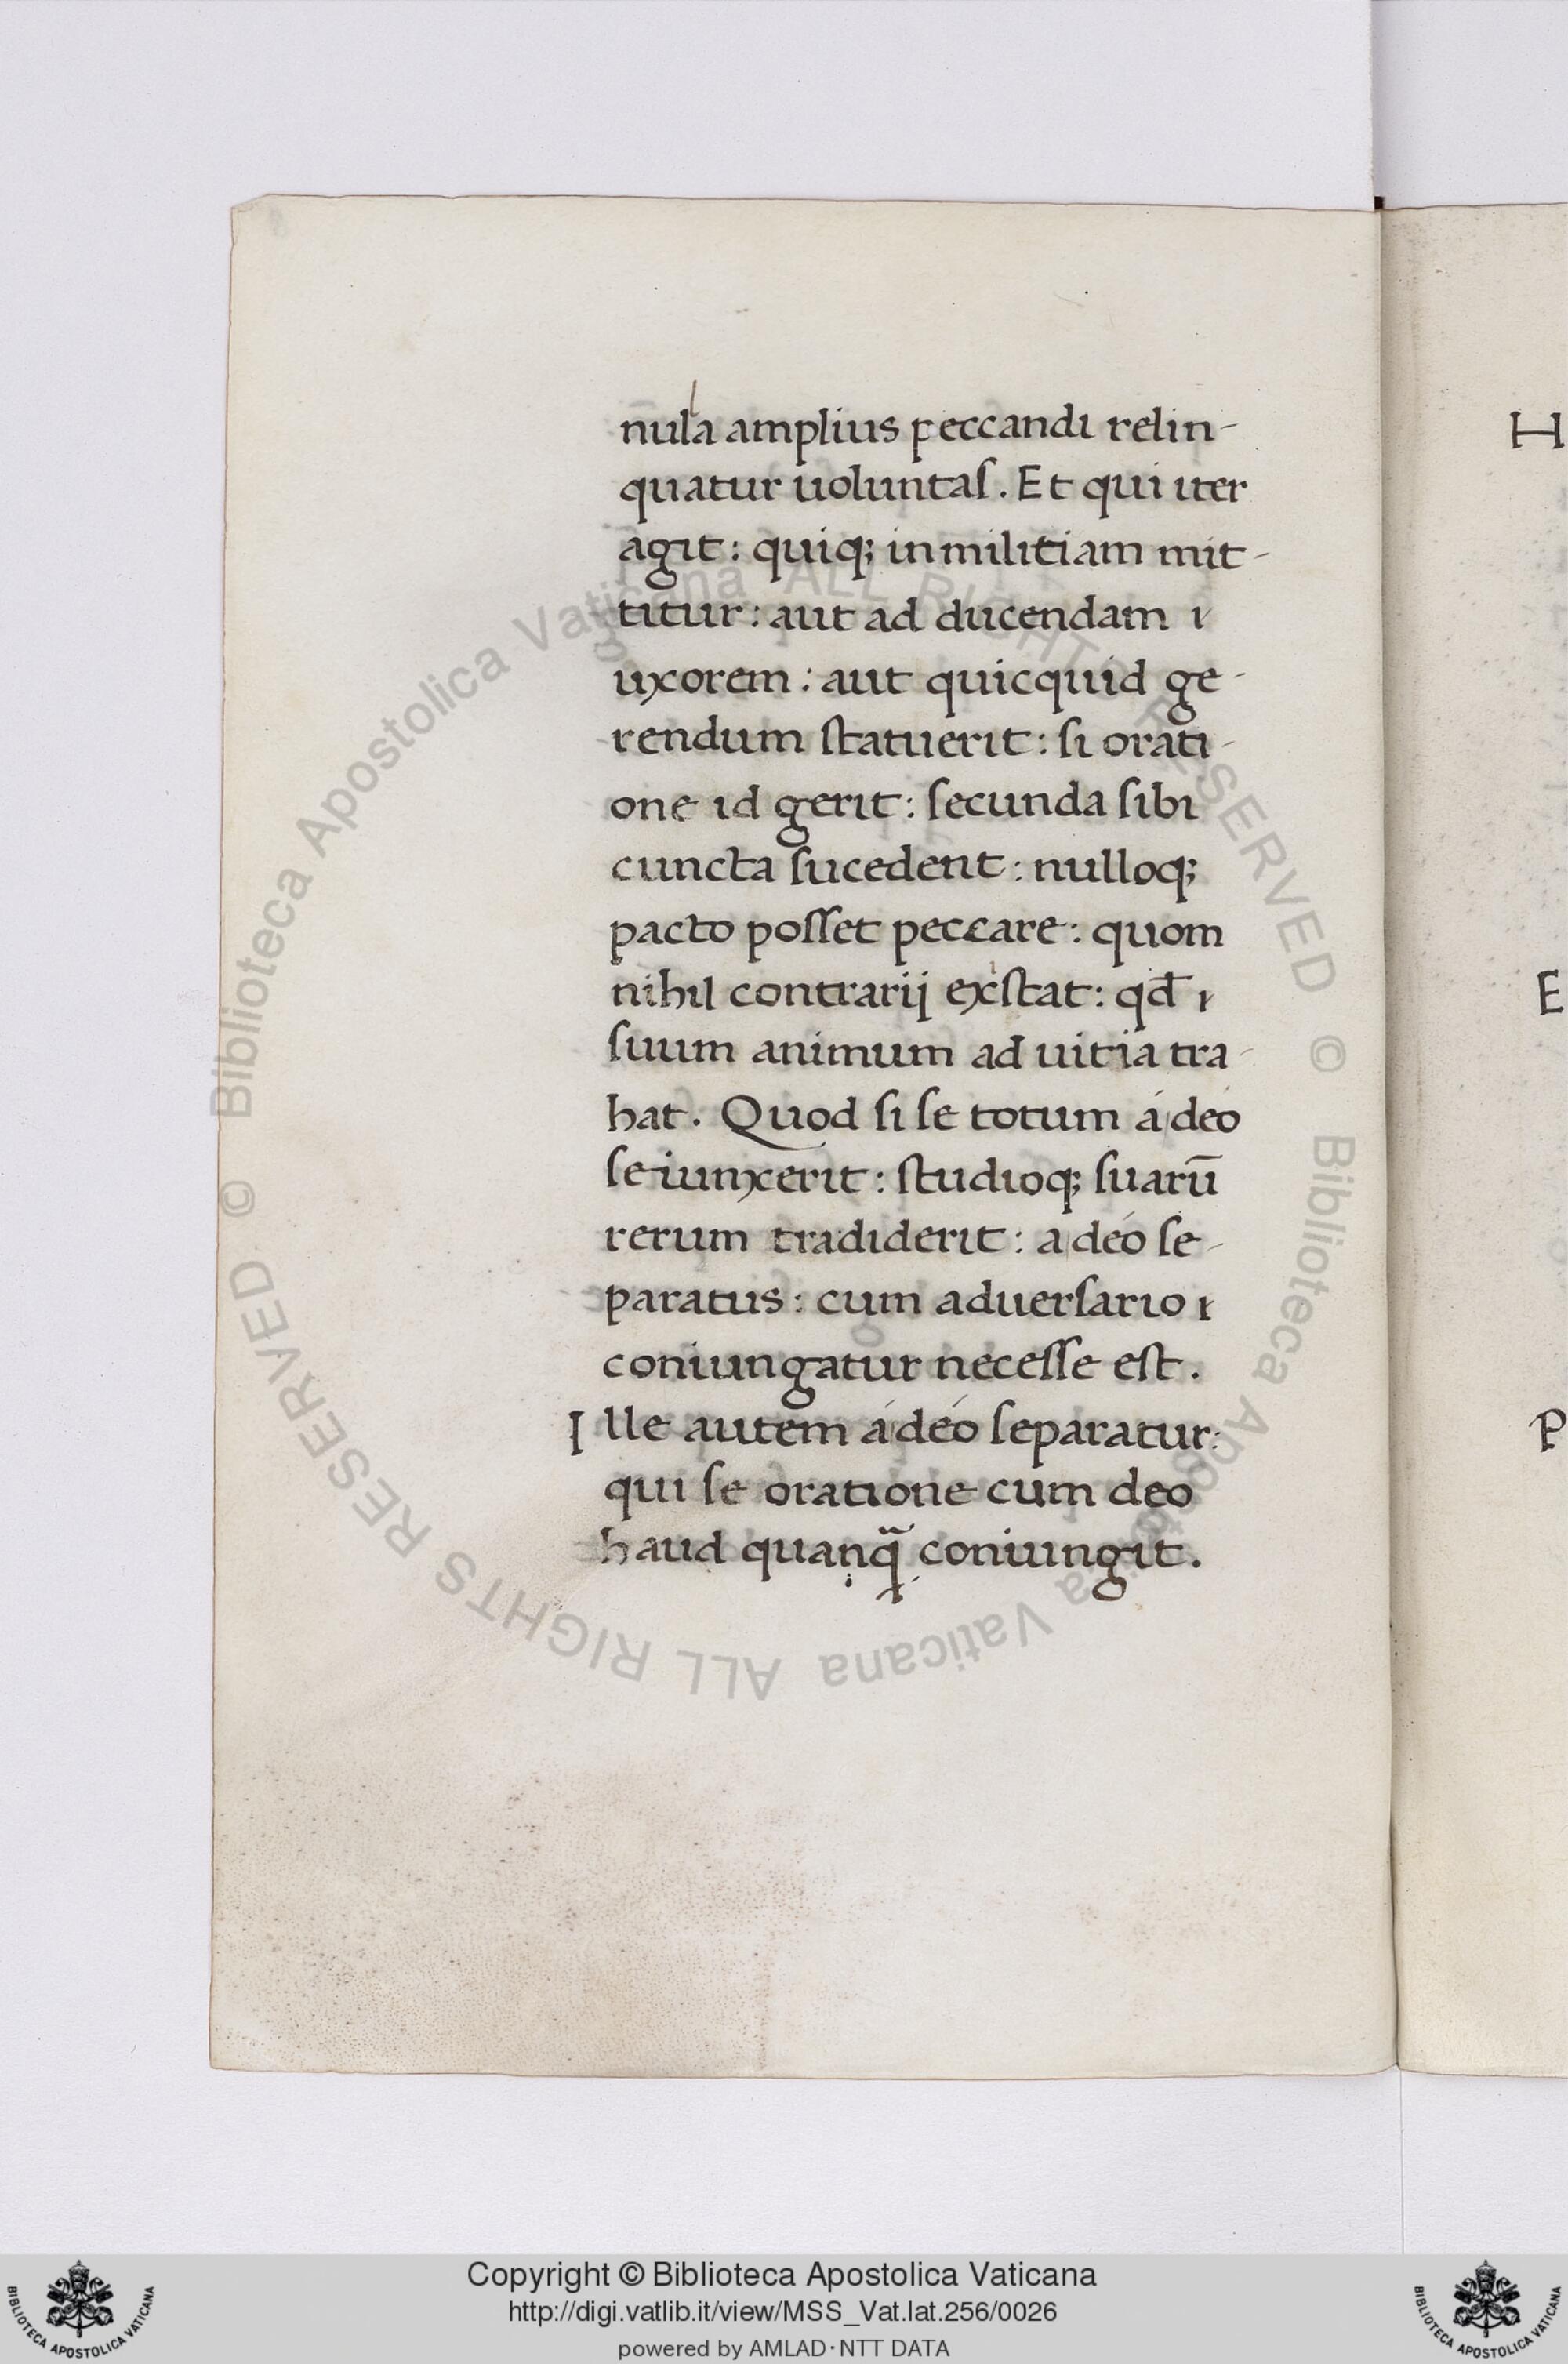 nulla amplius peccandi relin-
quatur uoluntaſ. Et qui iter
agit: quiq; in militiam mit-
titur: aut ad ducendam ı
uxorem: aut quicquid ge-
rendum ſtatuerit: ſi orati-
one id gerit: ſecunda ſibi
cuncta ſucedent: nulloq;
pacto poſſet peccare: quom
nihil contrarij exiſtat: qd̄ ı
ſuum animum ad uitia tra-
hat. Quod ſi ſe totum á deo
ſeiunxerit: ſtudioq; ſuarū
rerum tradiderit: a deo ſe-
paratus: cum aduerſario ı
coniungatur neceſſe eſt.
Ille autem á deo ſeparatur:
qui ſe oratione cum deo
haud quanq̃ coniungit.
H
E
P
© Biblioteca Apostolica Vaticana ALL RIGHTS RESERVED
© Biblioteca Apostolica Vaticana ALL RIGHTS RESERVED
BIBLIOTECA APOSTOLICA VATICANA
Copyright © Biblioteca Apostolica Vaticana
http://digi.vatlib.it/view/MSS_Vat.lat.256/0026
powered by AMLAD·NTT DATA
BIBLIOTECA APOSTOLICA VATICANA